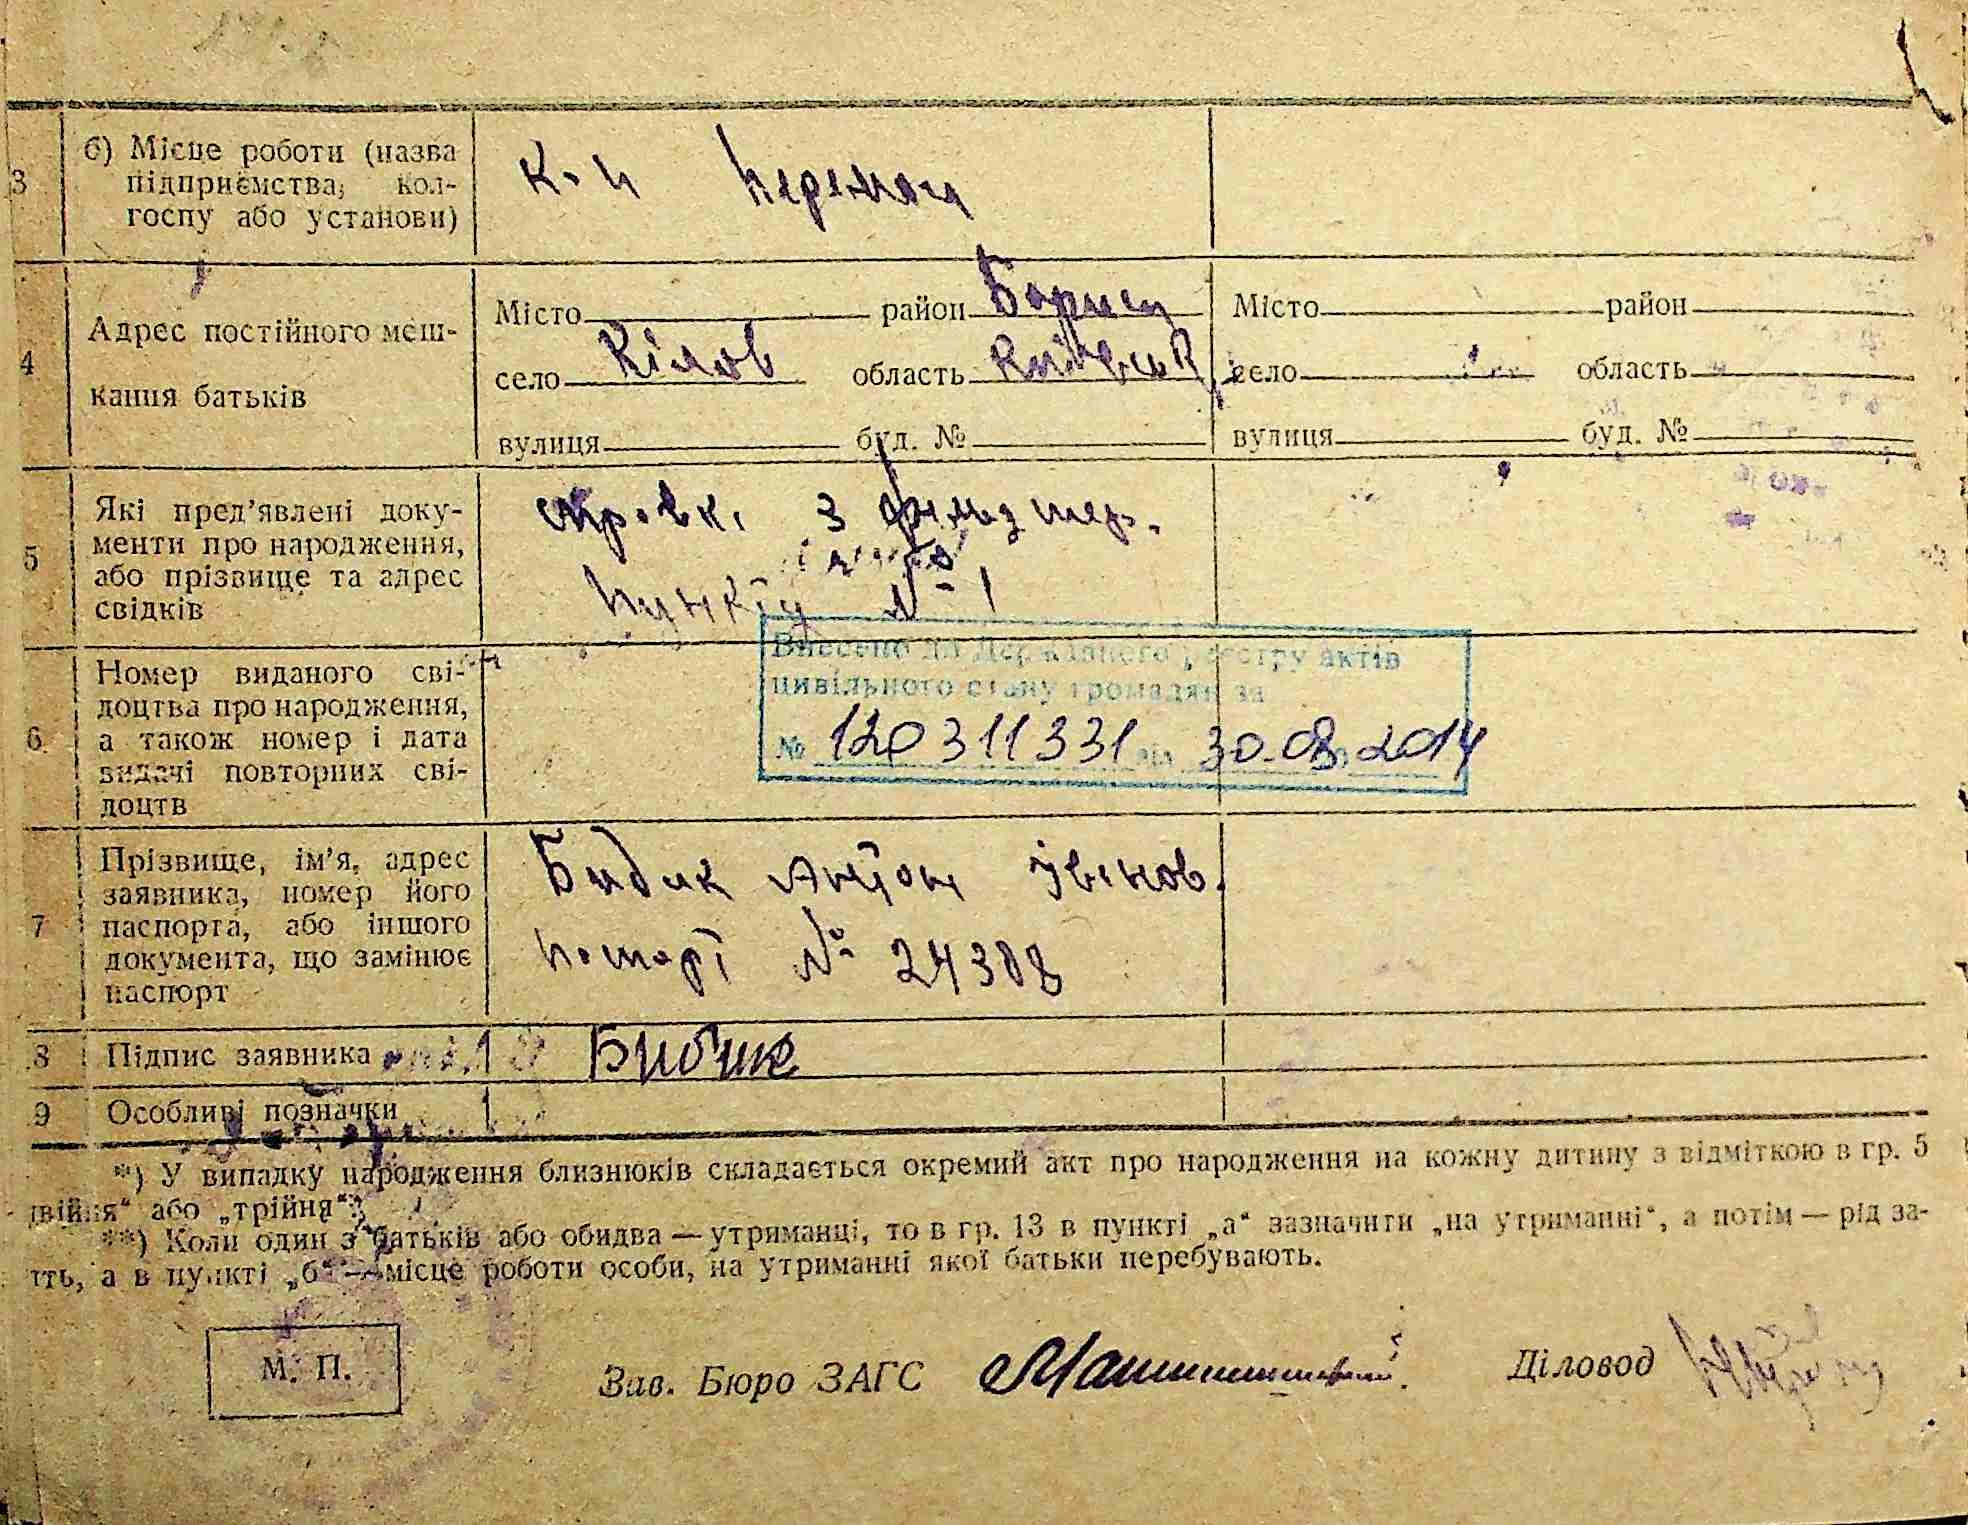 3 б) Місце роботи (назва
підприємства, кол-
госпу або установи)
к-п Перемога
4 Адрес постійного меш-
кання батьків
Місто район Борисп Місто район
село Кілов область Київськ село область
вулиця буд. № вулиця буд. №
5 Які пред'явлені доку-
менти про народження,
або прізвище та адрес
свідків
з фельдшер.
пункту № 1
6. Номер виданого сві-
доцтва про народження,
а також номер і дата
видачі повторних сві-
доцтв
Внесено до Державного реєстру актів
цивільного стану громадян за
№ 120311331 від 30.08.2014
7 Прізвище, ім'я, адрес
заявника, номер його
паспорта, або іншого
документа, що замінює
паспорт
Бибик Антон Іванов.
паспорт № 24388
8 Підпис заявника Бибик
9 Особливі позначки
*) У випадку народження близнюків складається окремий акт про народження на кожну дитину з відміткою в гр. 5
двійня" або „трійня".
**) Коли один з батьків або обидва — утриманці, то в гр. 13 в пункті „а" зазначити „на утриманні", а потім — рід за-
ять, а в пункті „б" — місце роботи особи, на утриманні якої батьки перебувають.
М. П.
Зав. Бюро ЗАГС
Діловод